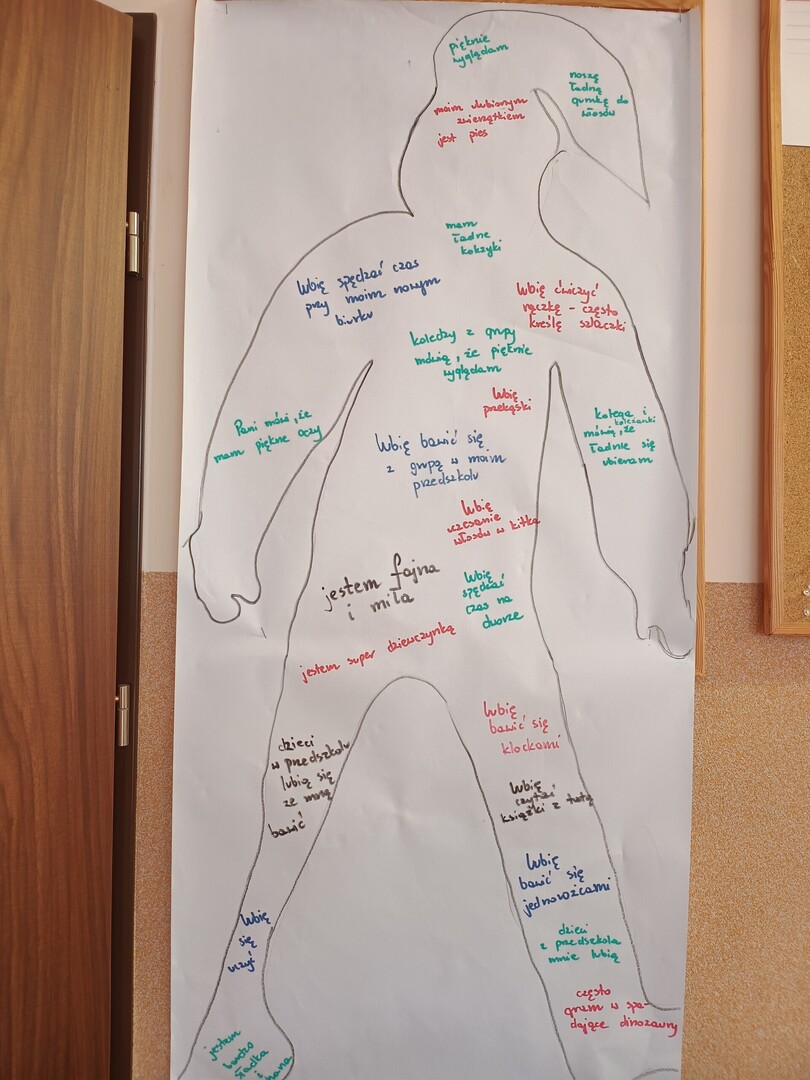 pięknie
wyglądam
noszę
ładną
gumkę do
włosów
moim ulubionym
zwierzątkiem
jest pies
mam
ładne
kolczyki
lubię spędzać czas
przy moim nowym
biurku
lubię ćwiczyć
rączkę - często
kreślę szlaczki
koledzy z grupy
mówią, że pięknie
wyglądam
lubię
przekąski
Pani mówi, że
mam piękne oczy
kolega i
koleżanki
mówią, że
ładnie się
ubieram
lubię bawić się
z grupą w moim
przedszkolu
lubię
uczesanie
włosów w kitka
jestem fajna
i miła
lubię
spędzać
czas na
dworze
jestem super dziewczynką
lubię
bawić się
klockami
dzieci
w przedszkolu
lubią się
ze mną
bawić
lubię
czytać
książki z tatą
lubię
bawić się
jednorożcami
lubię
się
uczyć
dzieci
z przedszkola
mnie lubią
często
gram w spa-
dające dinozaury
jestem
bardzo
słodka
i